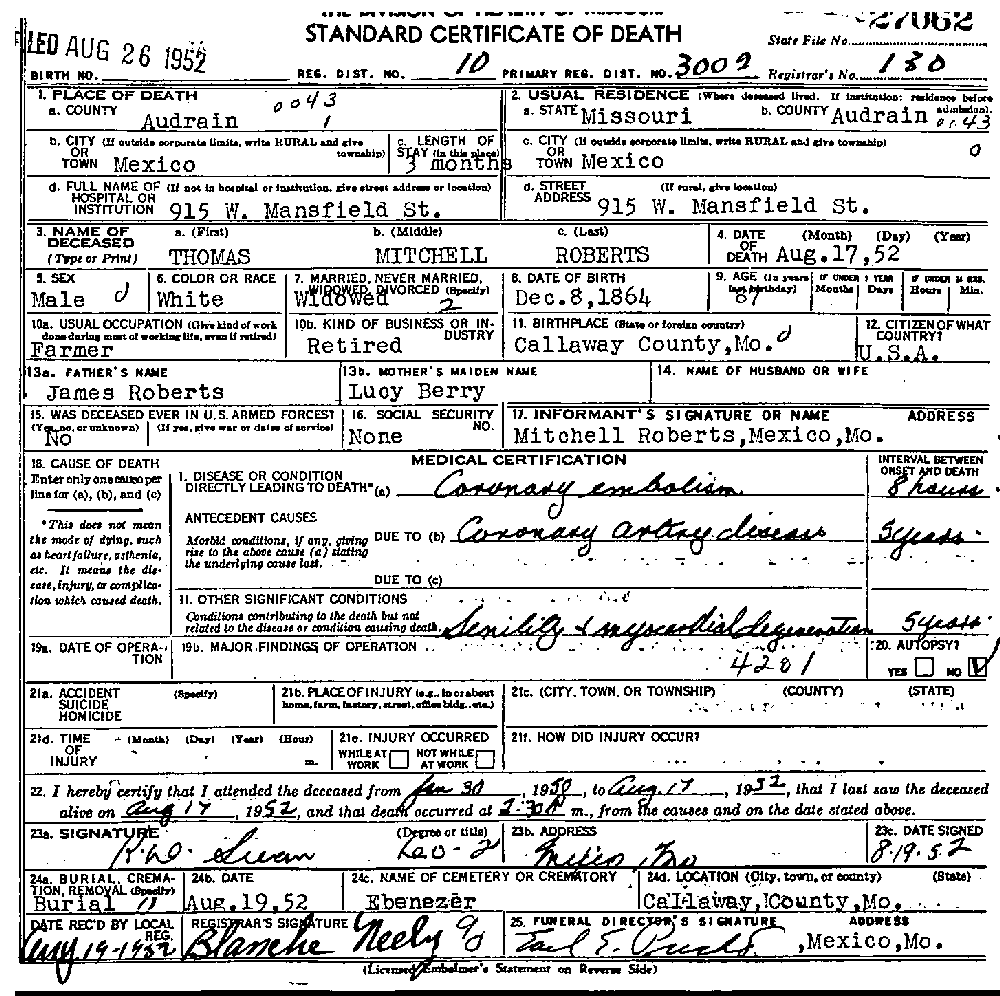 THE DIVISION OF HEALTH OF MISSOURI
STANDARD CERTIFICATE OF DEATH
FILED AUG 26 1952
State File No. 27062
BIRTH NO. REG. DIST. NO. 10 PRIMARY REG. DIST. NO. 3009 Registrar's No. 180
1. PLACE OF DEATH 0043
a. COUNTY Audrain 1
2. USUAL RESIDENCE (Where deceased lived. If institution: residence before admission)
a. STATE Missouri b. COUNTY Audrain 0043
b. CITY (If outside corporate limits, write RURAL and give township) OR TOWN Mexico
c. LENGTH OF STAY (in this place) 3 months
c. CITY (If outside corporate limits, write RURAL and give township) OR TOWN Mexico 0
d. FULL NAME OF HOSPITAL OR INSTITUTION (If not in hospital or institution, give street address or location) 915 W. Mansfield St.
d. STREET ADDRESS (If rural, give location) 915 W. Mansfield St.
3. NAME OF DECEASED (Type or Print) a. (First) THOMAS b. (Middle) MITCHELL c. (Last) ROBERTS
4. DATE OF DEATH (Month) (Day) (Year) Aug.17,52
5. SEX Male
6. COLOR OR RACE White
7. MARRIED, NEVER MARRIED, WIDOWED, DIVORCED (Specify) Widowed 2
8. DATE OF BIRTH Dec.8,1864
9. AGE (In years last birthday) 87 IF UNDER 1 YEAR Months Days IF UNDER 24 HRS. Hours Min.
10a. USUAL OCCUPATION (Give kind of work done during most of working life, even if retired) Farmer
10b. KIND OF BUSINESS OR INDUSTRY Retired
11. BIRTHPLACE (State or foreign country) Callaway County,Mo.
12. CITIZEN OF WHAT COUNTRY? U.S.A.
13a. FATHER'S NAME James Roberts
13b. MOTHER'S MAIDEN NAME Lucy Berry
14. NAME OF HUSBAND OR WIFE
15. WAS DECEASED EVER IN U.S. ARMED FORCES? (Yes, no, or unknown) (If yes, give war or dates of service) No
16. SOCIAL SECURITY NO. None
17. INFORMANT'S SIGNATURE OR NAME ADDRESS
Mitchell Roberts,Mexico,Mo.
18. CAUSE OF DEATH
Enter only one cause per line for (a), (b), and (c)
*This does not mean the mode of dying, such as heart failure, asthenia, etc. It means the disease, injury, or complication which caused death.
MEDICAL CERTIFICATION
INTERVAL BETWEEN ONSET AND DEATH
I. DISEASE OR CONDITION DIRECTLY LEADING TO DEATH* (a) Coronary embolism 8 hours
ANTECEDENT CAUSES
Morbid conditions, if any, giving rise to the above cause (a) stating the underlying cause last.
DUE TO (b) Coronary artery disease 5 years
DUE TO (c)
II. OTHER SIGNIFICANT CONDITIONS
Conditions contributing to the death but not related to the disease or condition causing death. Senility & myocardial degeneration 5 years
19a. DATE OF OPERATION
19b. MAJOR FINDINGS OF OPERATION
4201
20. AUTOPSY? YES NO
21a. ACCIDENT SUICIDE HOMICIDE (Specify)
21b. PLACE OF INJURY (e.g., in or about home, farm, factory, street, office bldg., etc.)
21c. (CITY, TOWN, OR TOWNSHIP) (COUNTY) (STATE)
21d. TIME OF INJURY (Month) (Day) (Year) (Hour) m.
21e. INJURY OCCURRED WHILE AT WORK NOT WHILE AT WORK
21f. HOW DID INJURY OCCUR?
22. I hereby certify that I attended the deceased from Jan 30, 1950, to Aug. 17, 1952, that I last saw the deceased
alive on Aug 17, 1952, and that death occurred at 2:30 m., from the causes and on the date stated above.
23a. SIGNATURE (Degree or title)
Swan
23b. ADDRESS Mexico, Mo
23c. DATE SIGNED 8-19-52
24a. BURIAL, CREMATION, REMOVAL (Specify) Burial
24b. DATE Aug.19,52
24c. NAME OF CEMETERY OR CREMATORY Ebenezer
24d. LOCATION (City, town, or county) (State) Callaway, County,Mo.
DATE REC'D BY LOCAL REG. Aug 19-1952
REGISTRAR'S SIGNATURE Blanche Neely
25. FUNERAL DIRECTOR'S SIGNATURE ADDRESS
Earl E. ,Mexico,Mo.
(Licensed Embalmer's Statement on Reverse Side)